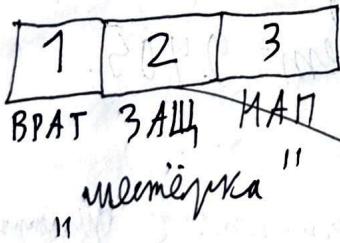 1 2 3
ВРАТ ЗАЩ НАП
"шестёрка"